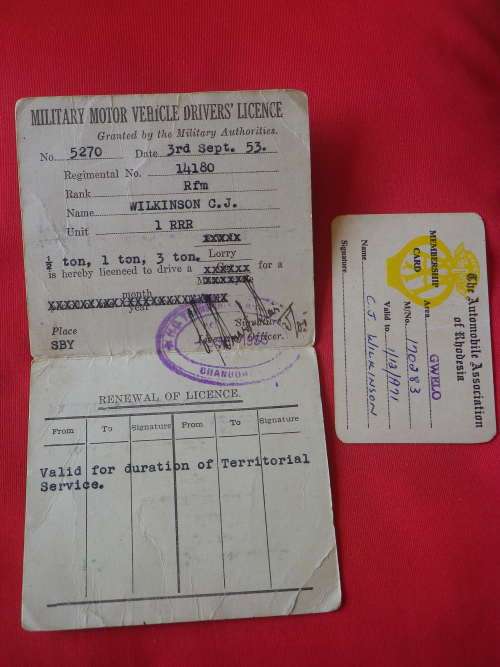 MILITARY MOTOR VEHICLE DRIVERS' LICENCE
Granted by the Military Authorities.
No. 5270 Date 3rd Sept. 53.
Regimental No. 14180
Rank Rfm
Name WILKINSON C.J.
Unit 1 RRR
xxxxx
½ ton, 1 ton, 3 ton. Lorry
is hereby licenced to drive a xxxxxx for a
month
xxxxxxxxxxxxxxxxxxxxxxx
year
Place Signature
SBY Officer.
RENEWAL OF LICENCE.
From To Signature From To Signature
Valid for duration of Territorial
Service.
The Automobile Association
of Rhodesia
MEMBERSHIP
CARD
Area GWELO
M/No. 170283
Valid to
Name C.J WILKINSON
Signature